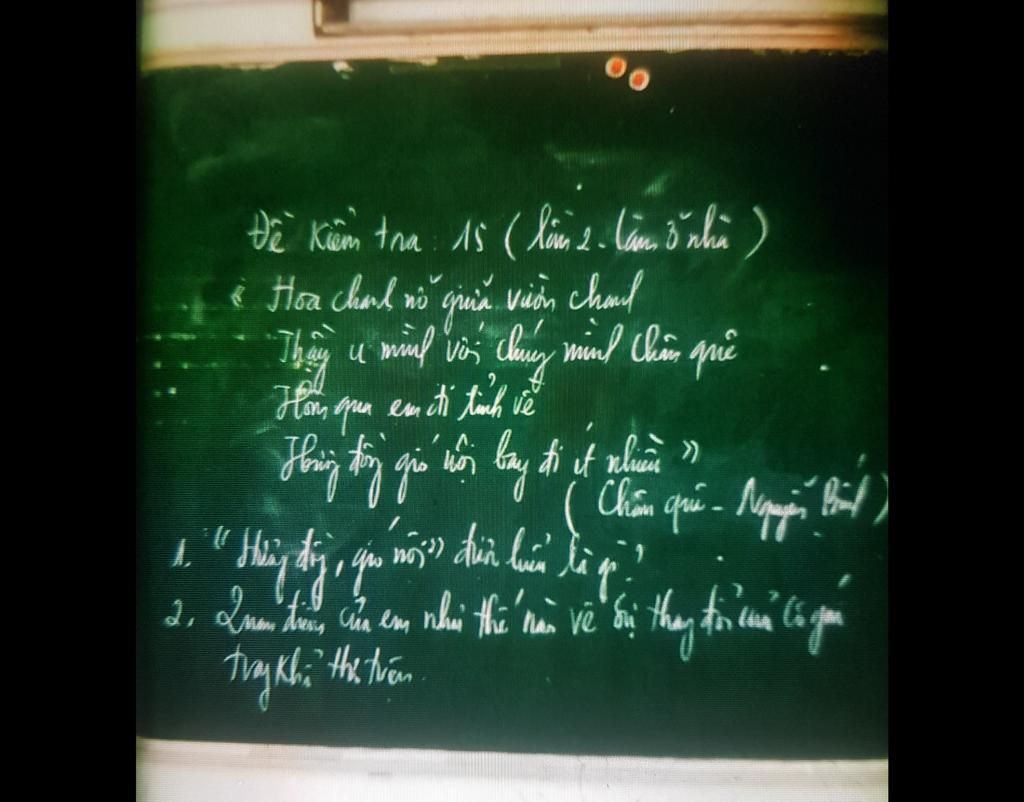 Đề kiểm tra: 15 (lần 2 - lần 3 nhà)
« Hoa chanh nở giữa vườn chanh
Thầy u mình với chúng mình chân quê
Hôm qua em đi tỉnh về
Hương đồng gió nội bay đi ít nhiều »
(Chân quê - Nguyễn Bính)
1. "Hương đồng, gió nội» được hiểu là gì?
2. Quan điểm của em như thế nào về sự thay đổi của cô gái
trong khổ thơ trên.